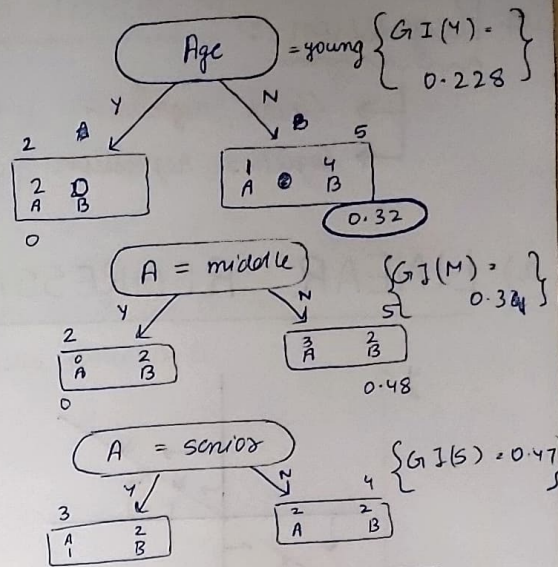 Age = young { GI(Y) = 0.228 }
Y N
2 B 5
2 0
A B
1 4
A B
0
0.32
A = middle { GI(M) = 0.34 }
Y N
2 5
0 2
A B
3 2
A B
0
0.48
A = senior { GI(S) = 0.47 }
Y N
3 4
A 2
1 B
2 2
A B